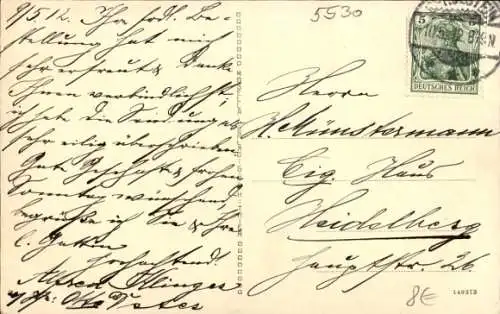 9/5. 12. Ihre frdl. Be-
stellung hat mich
sehr erfreut & danke
Ihnen verbindlichst,
ich habe die Sendung als
sehr eilig überschrieben
Gute Geschäfte & frohen
Sonntag wünschend
begrüße ich Sie & Ihre
l. Gattin
hochachtend.
Alfred
5530
5
DEUTSCHES REICH
Herrn
H. Münstermann
Cig. Haus
Heidelberg
Hauptstr. 26.
8€